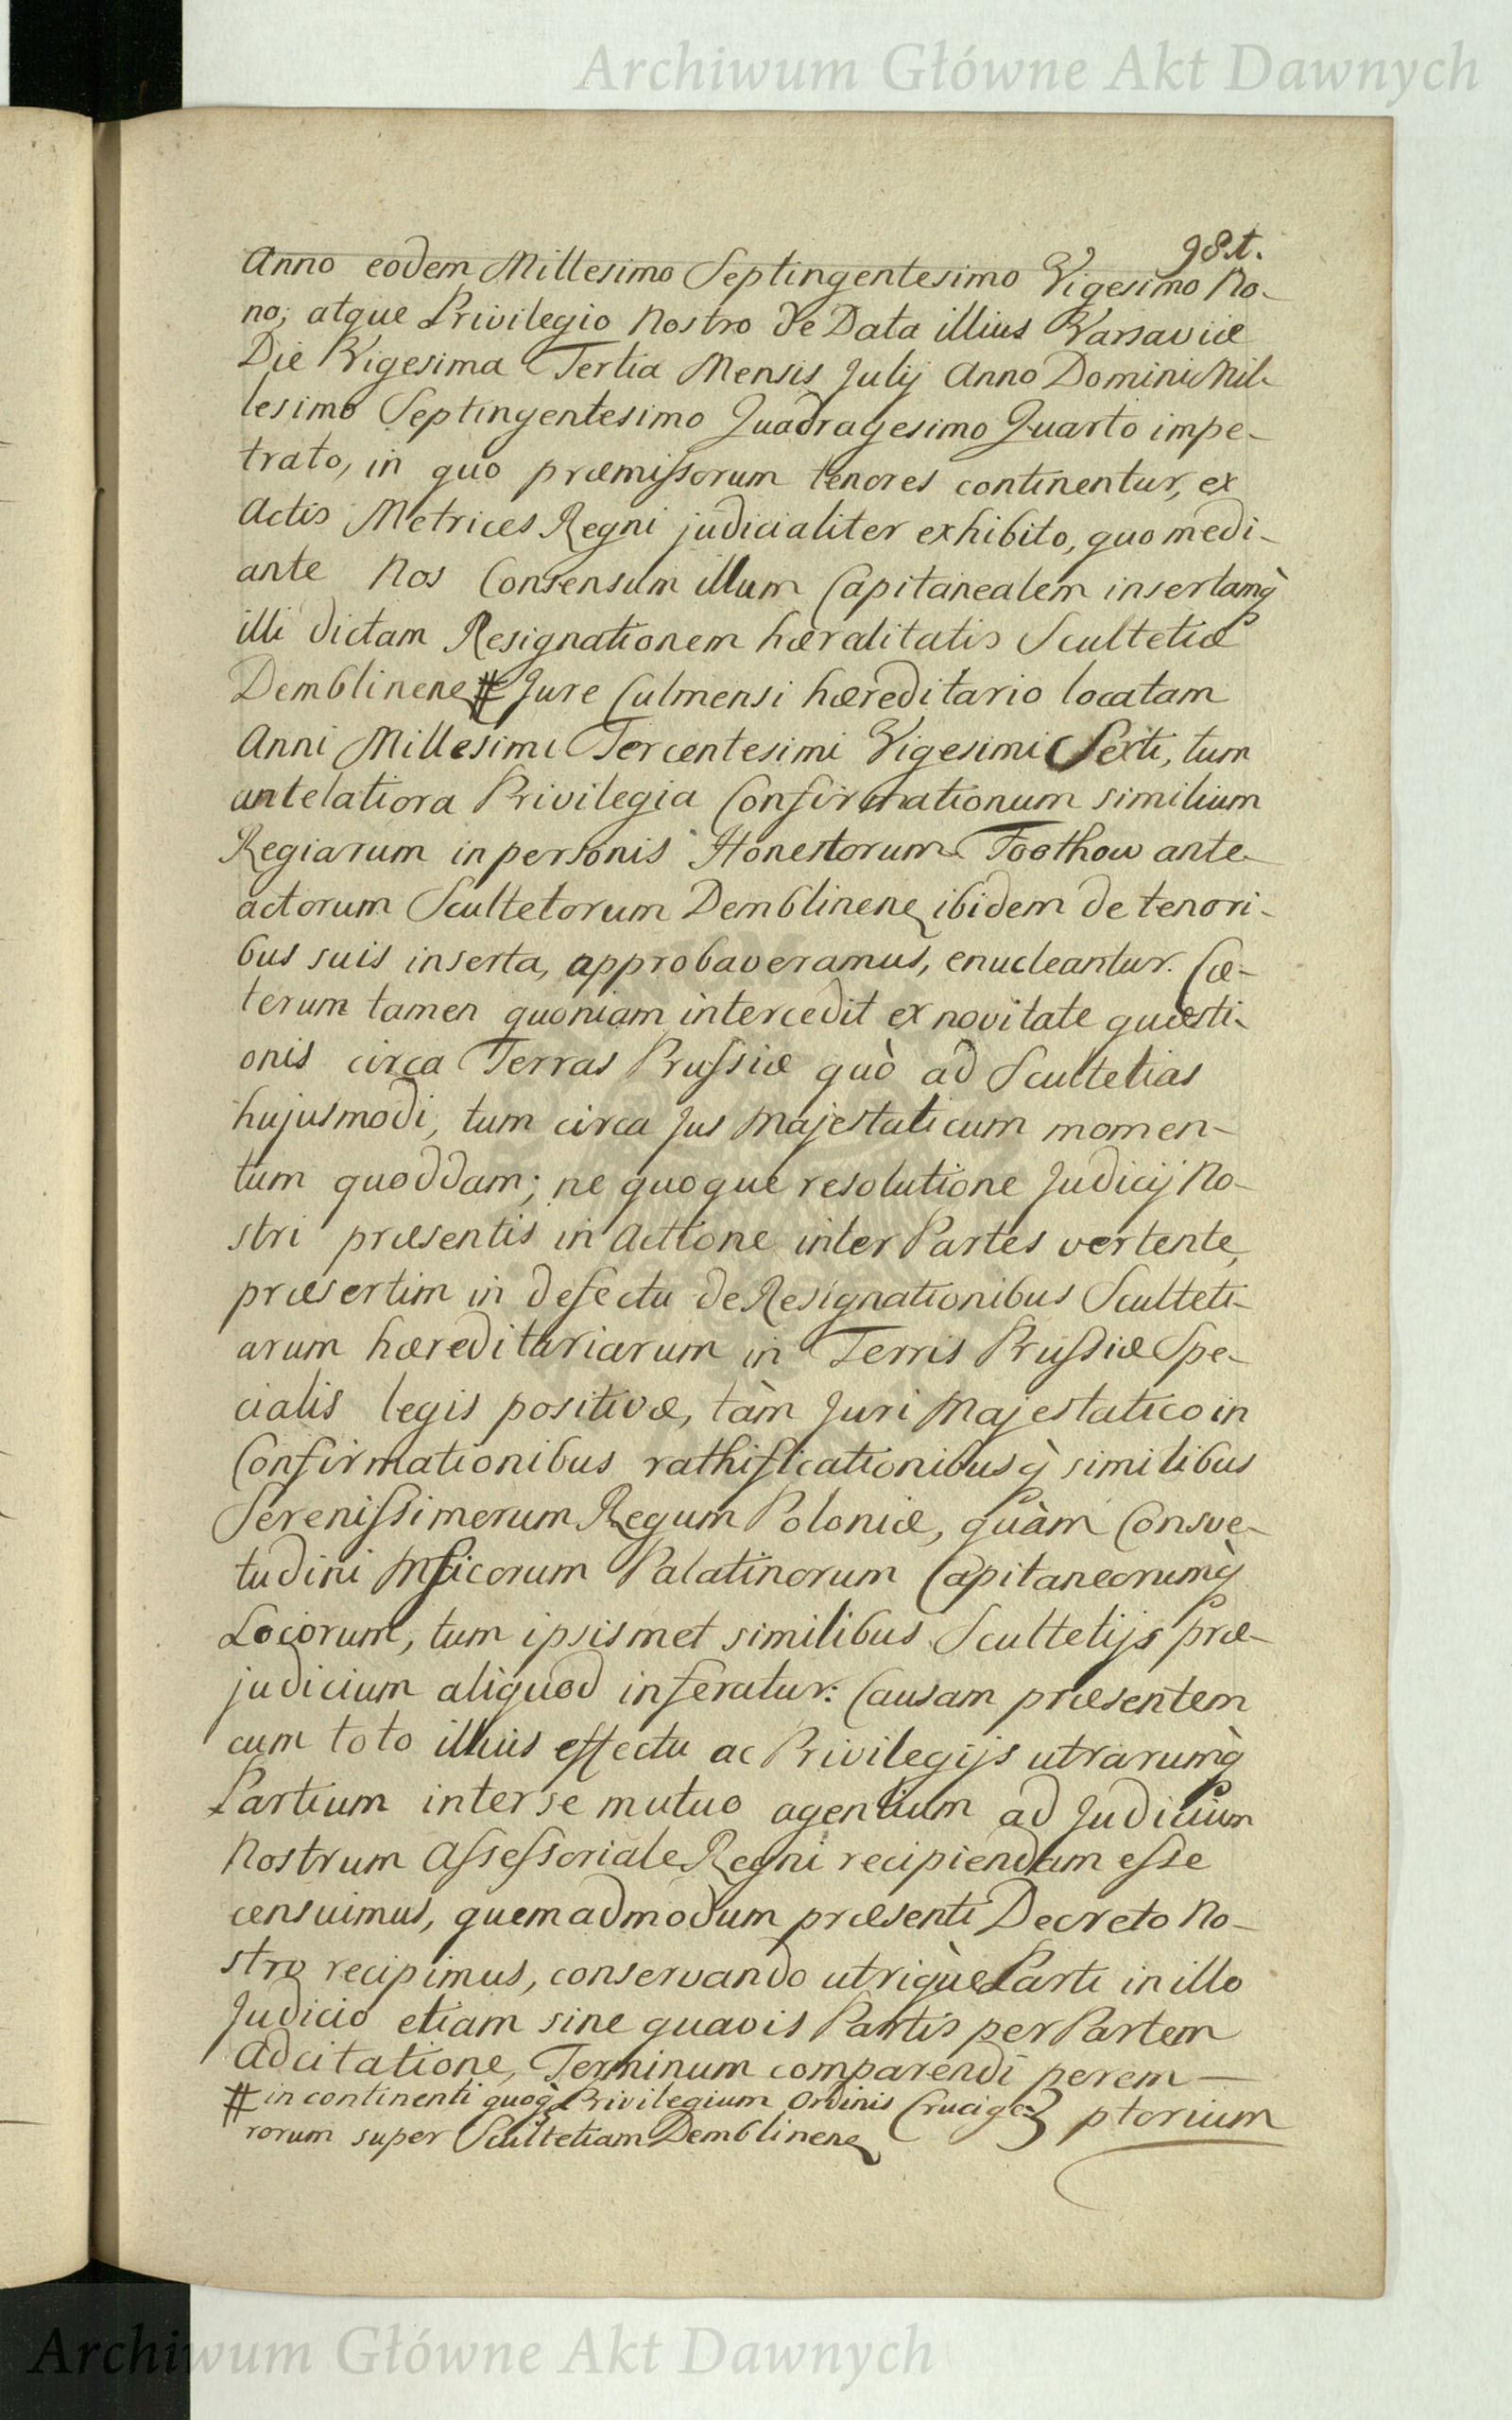 Archiwum Główne Akt Dawnych
98.t.
Anno eodem Millesimo Septingentesimo Vigesimo No-
no; atque Privilegio Nostro de Data illius Varsaviæ
Die Vigesima Tertia Mensis Julij Anno Domini Mil-
lesimo Septingentesimo Quadragesimo Quarto impe-
trato, in quo præmissorum tenores continentur, ex
Actis Metrices Regni judicialiter exhibito, quo medi-
ante Nos Consensum illum Capitanealem insertamq̀
illi dictam Resignationem hæralitatis Scultetiæ
Demblinen # Jure Culmensi hæreditario locatam
Anni Millesimi Tercentesimi Vigesimi Sexti, tum
antelatiora Privilegia Confirmationum similium
Regiarum in personis Honestorum Foothow ante-
actorum Scultetorum Demblinen ibidem de tenori-
bus suis inserta, approbaveramus, enucleantur. Cæ-
terum tamen quoniam intercedit ex novitate quæsti-
onis circa Terras Prussiæ quò ad Scultetias
hujusmodi, tum circa Jus Majestaticum momen-
tum quoddam; ne quoque resolutione Judicij No-
stri præsentis in Actione inter Partes vertente,
præsertim in defectu de Resignationibus Sculteti-
arum hæreditariarum in Terris Prussiæ Spe-
cialis legis positivæ, tàm Juri Majestatico in
Confirmationibus rathificationibusq̀ similibus
Serenissimorum Regum Poloniæ, quàm Consve-
tudini Mficorum Palatinorum Capitaneorumq̀
Locorum, tum ipsismet similibus Scultetijs præ-
judicium aliquod inferatur: Causam præsentem
cum toto illius effectu ac Privilegijs utrarumq̀
Partium inter se mutuo agentium ad Judicium
Nostrum Assessoriale Regni recipiendam esse
censuimus, quemadmodum præsenti Decreto No-
stro recipimus, conservando utriquè Parti in illo
Judicio etiam sine quavis Partis per Partem
Adcitatione, Terminum comparendi perem-
ptorium
# in continenti quoq̀ Privilegium Ordinis Crucige-
rorum super Scultetiam Demblinen
Archiwum Główne Akt Dawnych